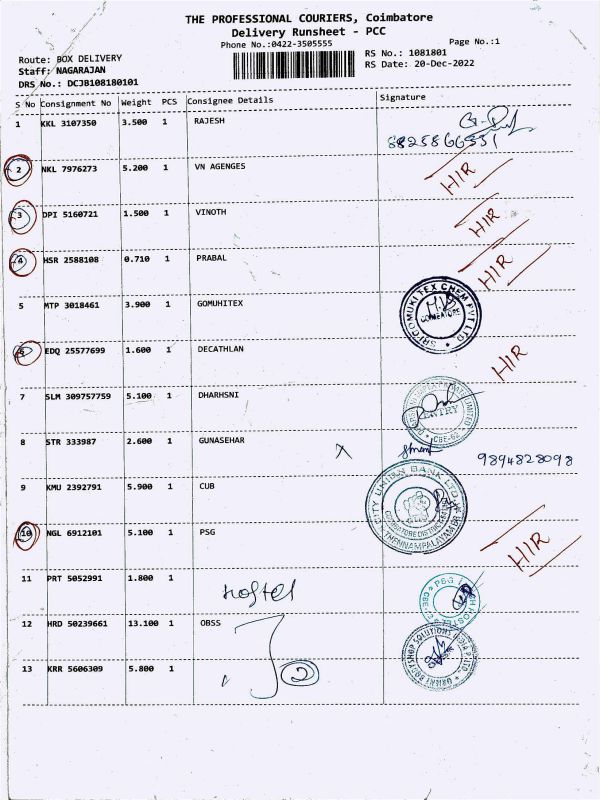 THE PROFESSIONAL COURIERS, Coimbatore
Delivery Runsheet - PCC
Phone No.:0422-3505555
Page No.:1
Route: BOX DELIVERY
RS No.: 1081801
Staff: NAGARAJAN
RS Date: 20-Dec-2022
DRS No.: DCJB108180101
S No Consignment No Weight PCS Consignee Details Signature
1 KKL 3107350 3.500 1 RAJESH
8825866531
2 NKL 7976273 5.200 1 VN AGENGES HIR
3 DPI 5160721 1.500 1 VINOTH HIR
4 HSR 2588108 0.710 1 PRABAL HIR
5 MTP 3018461 3.900 1 GOMUHITEX
SRI GOMUKI TEX CHEM PVT LTD.
COIMBATORE
6 EDQ 25577699 1.600 1 DECATHLAN HIR
7 SLM 309757759 5.100 1 DHARHSNI
ENTRY
CBE-62
8 STR 333987 2.600 1 GUNASEHAR 9894828098
9 KMU 2392791 5.900 1 CUB
CITY UNION BANK LTD.
THENNAMPALAYAM
10 NGL 6912101 5.100 1 PSG HIR
11 PRT 5052991 1.800 1 Hostel
PSG
12 HRD 50239661 13.100 1 OBSS
ORIENT BODYSHOP SOLUTIONS INDIA P LTD
13 KRR 5606309 5.800 1 2